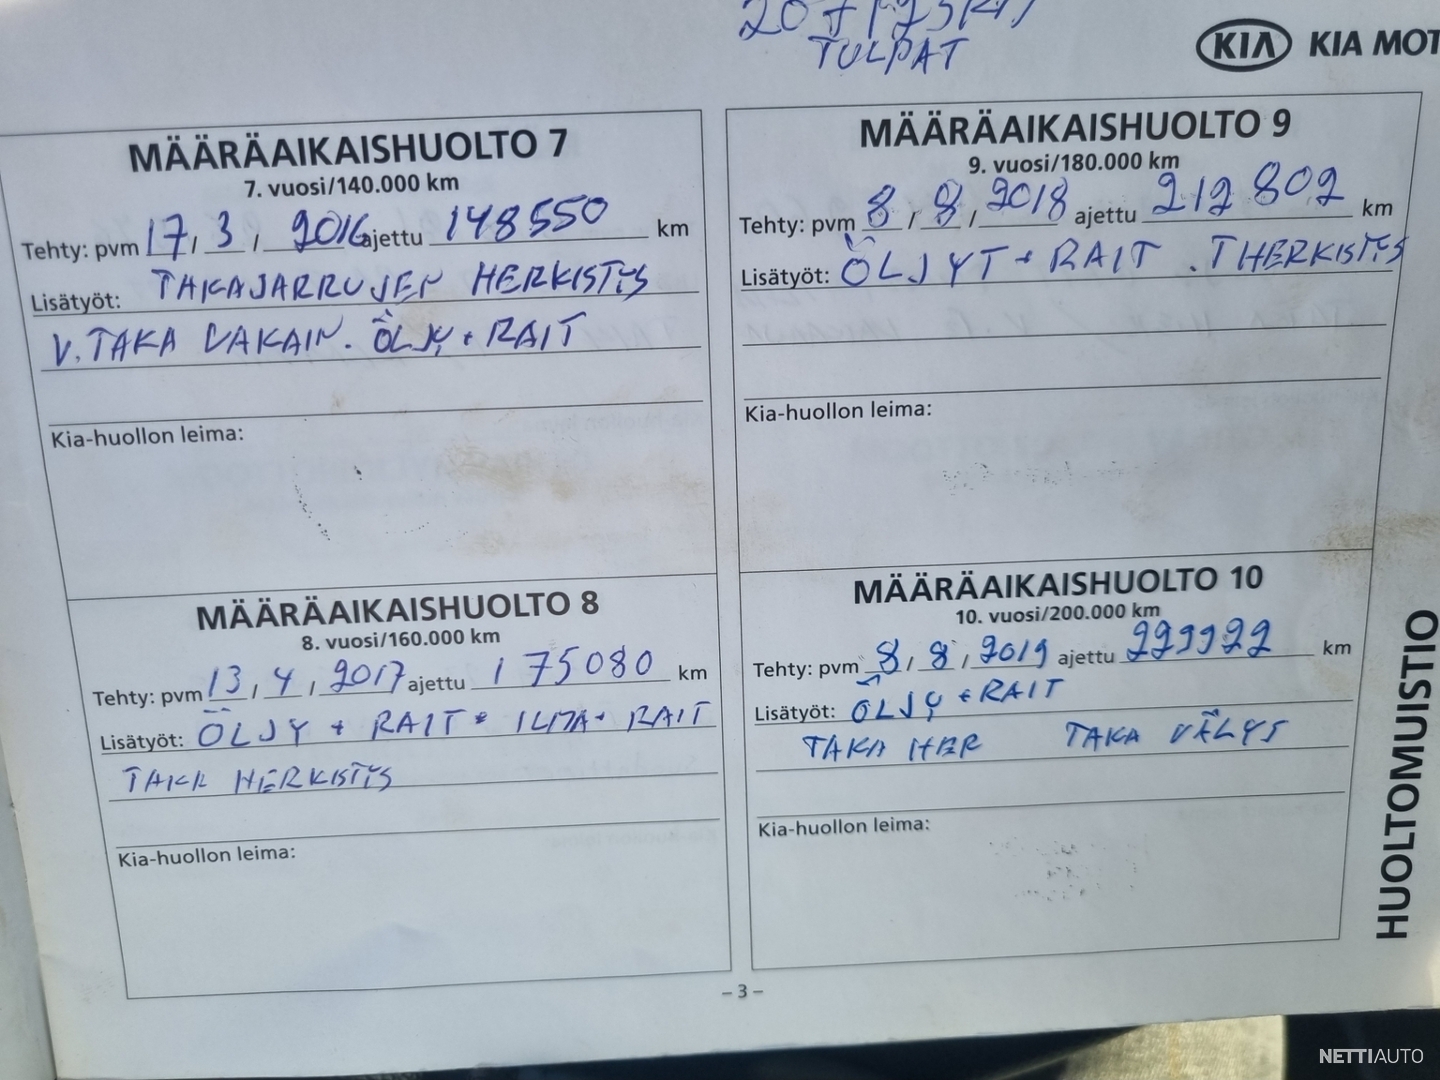 TULPAT
KIA KIA MOT
MÄÄRÄAIKAISHUOLTO 7
7. vuosi/140.000 km
Tehty: pvm 17, 3, 2016 ajettu 148550 km
Lisätyöt: TAKAJARRUJEN HERKISTYS
V. TAKA VAKAIN. ÖLJY + RAIT
Kia-huollon leima:
MÄÄRÄAIKAISHUOLTO 8
8. vuosi/160.000 km
Tehty: pvm 13, 4, 2017 ajettu 175080 km
Lisätyöt: ÖLJY + RAIT + ILMA + RAIT
TAKA HERKISTYS
Kia-huollon leima:
MÄÄRÄAIKAISHUOLTO 9
9. vuosi/180.000 km
Tehty: pvm 8, 8, 2018 ajettu 212802 km
Lisätyöt: ÖLJYT + RAIT . THERKISTYS
Kia-huollon leima:
MÄÄRÄAIKAISHUOLTO 10
10. vuosi/200.000 km
Tehty: pvm 8, 8, 2019 ajettu 229922 km
Lisätyöt: ÖLJY + RAIT
TAKA HER TAKA VÄLYS
Kia-huollon leima:
HUOLTOMUISTIO
– 3 –
NETTIAUTO